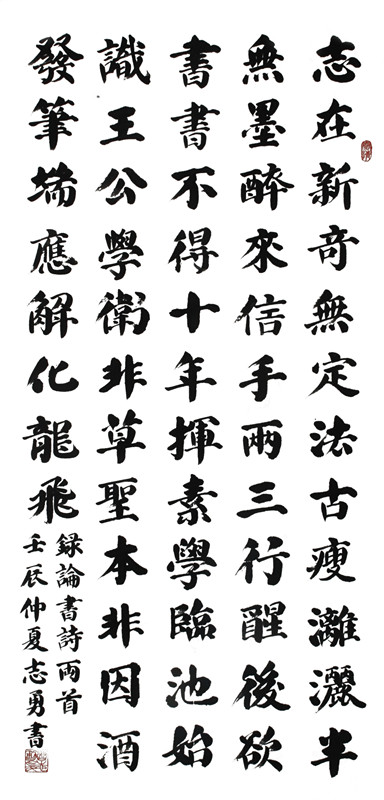 志在新奇無定法古瘦灕灑半
無墨醉來信手兩三行醒後欲
書書不得十年揮素學臨池始
識王公學衛非草聖本非因酒
發筆端應解化龍飛
録論書詩兩首
壬辰仲夏志勇書